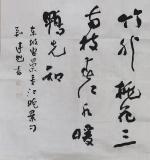 竹外桃花三
两枝春江水暖
鸭先知
东坡惠崇春江晚景句